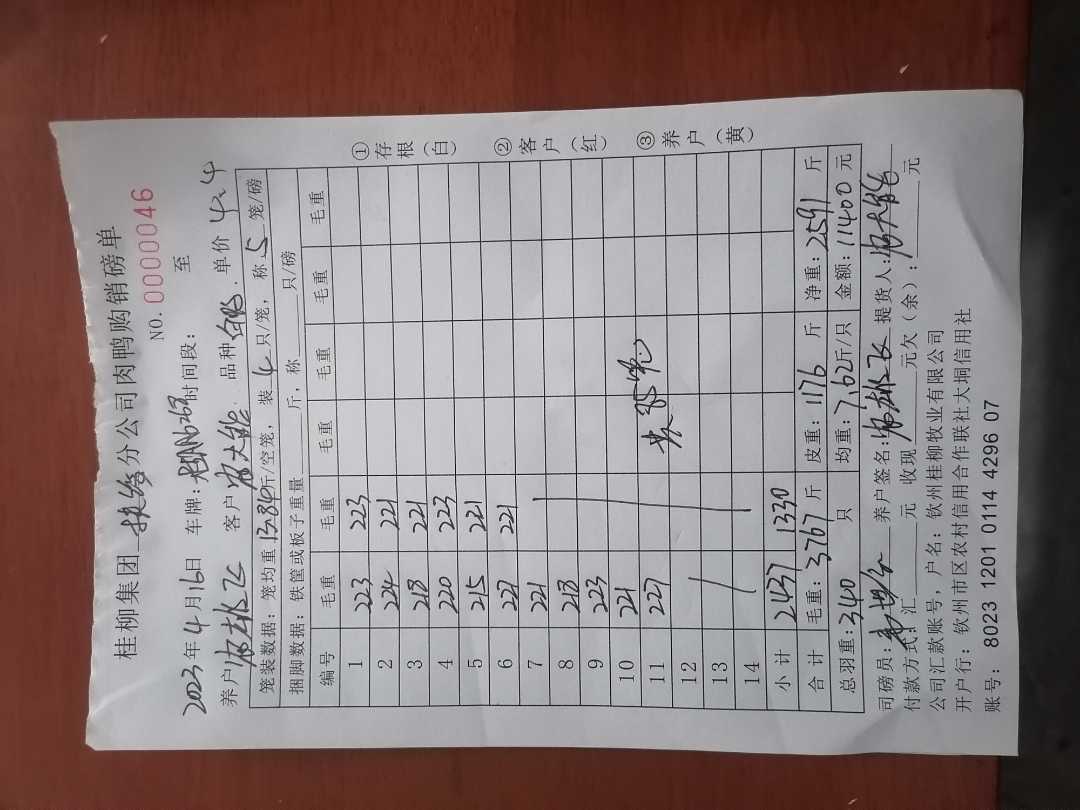 桂柳集团 分公司肉鸭购销磅单
NO. 0000046
2023年4月16日 车牌: 时间段: 至
养户 客户 品种 白鸭 . 单价 4.4
笼装数据：笼均重 13.84 斤/空笼， 装 4 只/笼， 称 5 笼/磅
捆脚数据：铁筐或板子重量 斤，称 只/磅
编号 毛重 毛重 毛重 毛重 毛重 毛重
1 223 223
2 224 221
3 218 221
4 220 223
5 215 221
6 227 221
7 221
8 218
9 223
10 221
11 227 共85笼
12
13
14
小计 2437 1330
合计 毛重：3767 斤 皮重：1176 斤 净重：2591 斤
总羽重：340 只 均重：7.62斤/只 金额：11400 元
司磅员： 养户签名： 提货人：
付款方式：汇 元 收现 元欠（余）： 元
公司汇款账号，户名：钦州桂柳牧业有限公司
开户行：钦州市区农村信用合作联社大垌信用社
账号：8023 1201 0114 4296 07
①存根（白）
②客户（红）
③养户（黄）